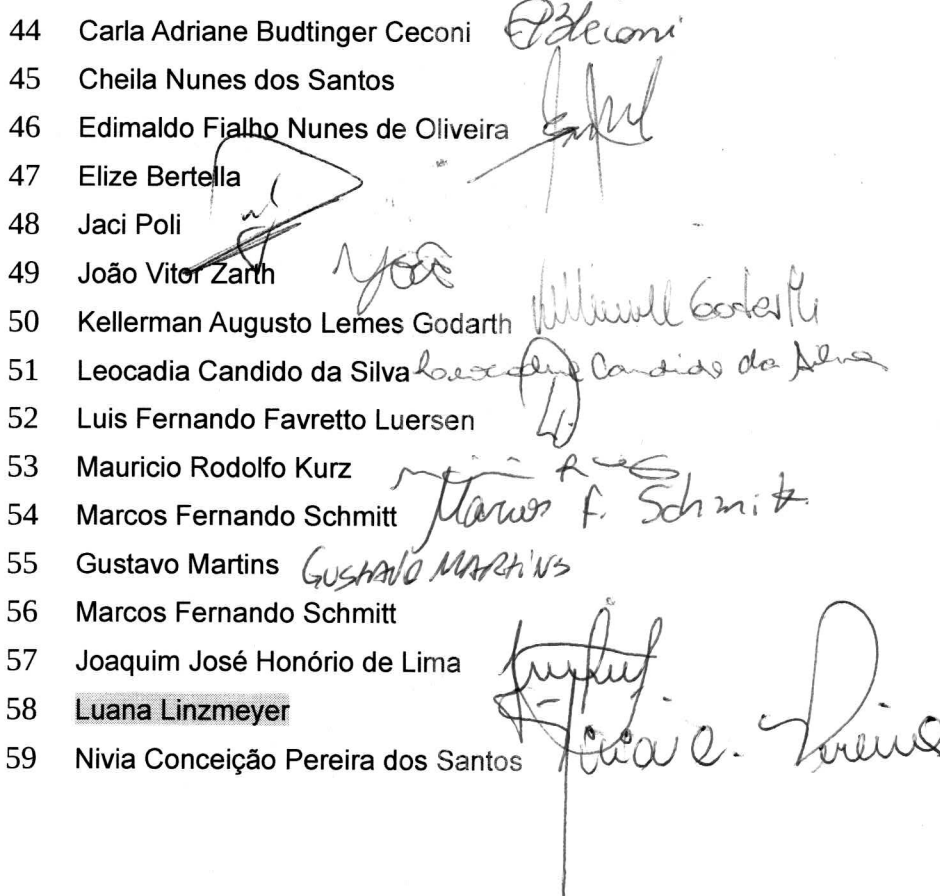 44 Carla Adriane Budtinger Ceconi
45 Cheila Nunes dos Santos
46 Edimaldo Fialho Nunes de Oliveira
47 Elize Bertella
48 Jaci Poli
49 João Vitor Zarth João
50 Kellerman Augusto Lemes Godarth Godarth
51 Leocadia Candido da Silva Candido da Silva
52 Luis Fernando Favretto Luersen
53 Mauricio Rodolfo Kurz
54 Marcos Fernando Schmitt Marcos F. Schmitt
55 Gustavo Martins GUSTAVO MARTINS
56 Marcos Fernando Schmitt
57 Joaquim José Honório de Lima
58 Luana Linzmeyer
59 Nivia Conceição Pereira dos Santos Nivia C. Pereira